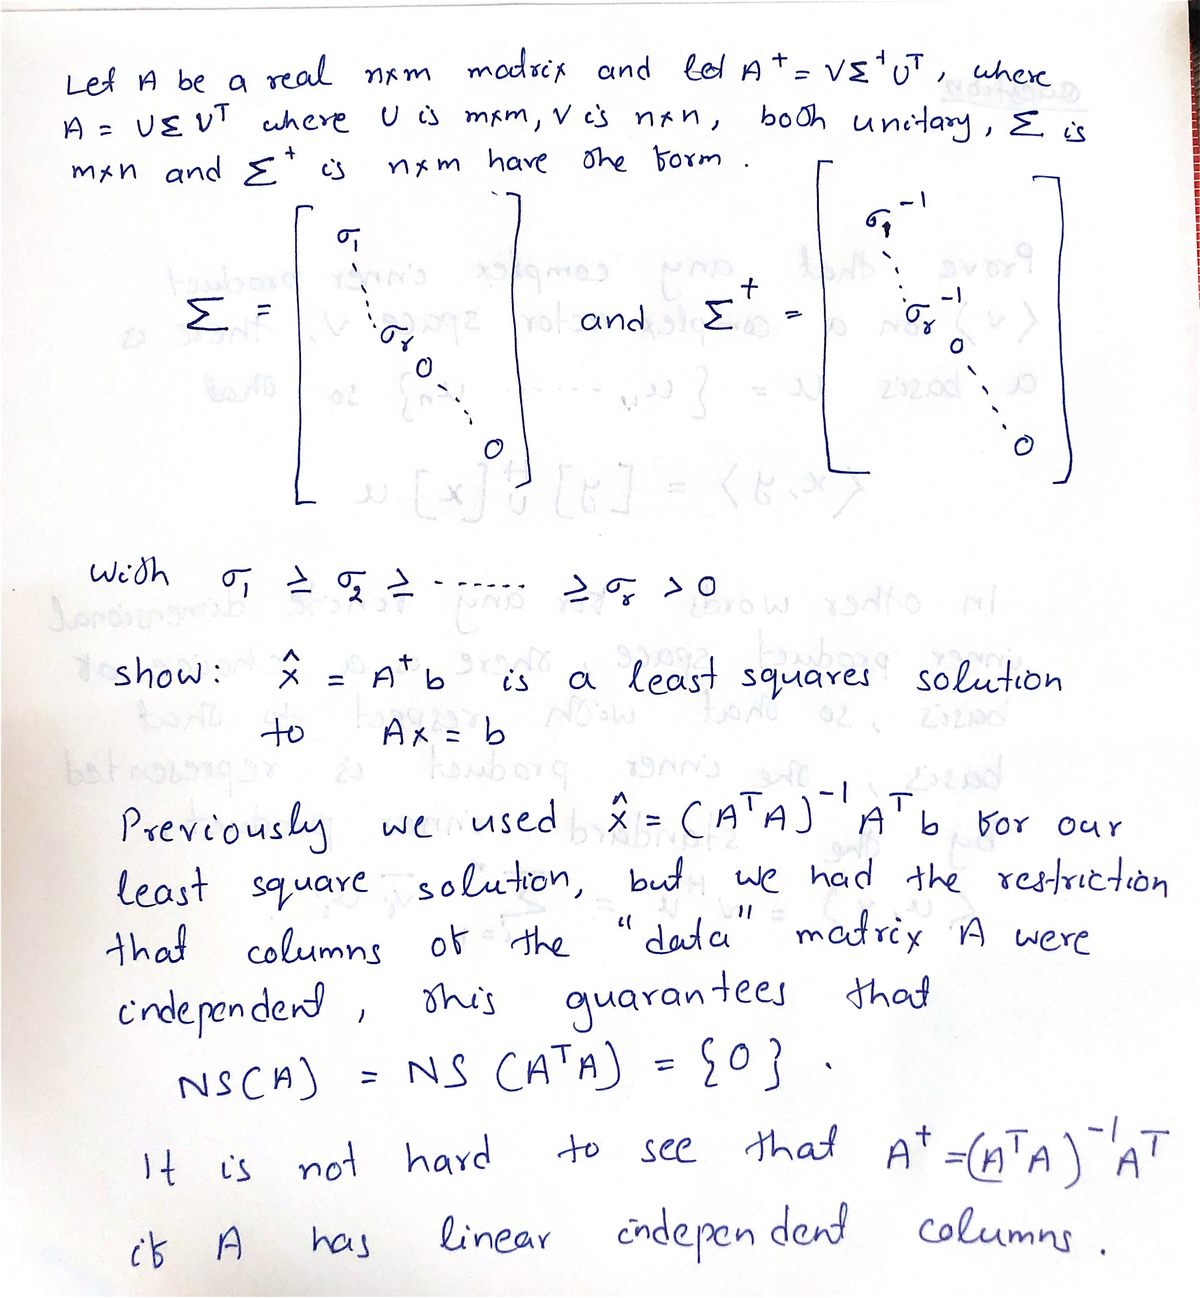 Let A be a real n×m matrix and let A⁺ = VΣ⁺Uᵀ, where
A = UΣVᵀ where U is m×m, V is n×n, both unitary, Σ is
m×n and Σ⁺ is n×m have the form .
Σ = [ σ₁ ⋱ σᵣ 0 ⋱ 0 ] and Σ⁺ = [ σ₁⁻¹ ⋱ σᵣ⁻¹ 0 ⋱ 0 ]
with σ₁ ≥ σ₂ ≥ ------ ≥ σᵣ > 0
show: x̂ = A⁺b is a least squares solution
to Ax = b
Previously we used x̂ = (AᵀA)⁻¹Aᵀb for our
least square solution, but we had the restriction
that columns of the "data" matrix A were
independent, this guarantees that
NS(A) = NS(AᵀA) = {0} .
It is not hard to see that A⁺ = (AᵀA)⁻¹Aᵀ
if A has linear independent columns .